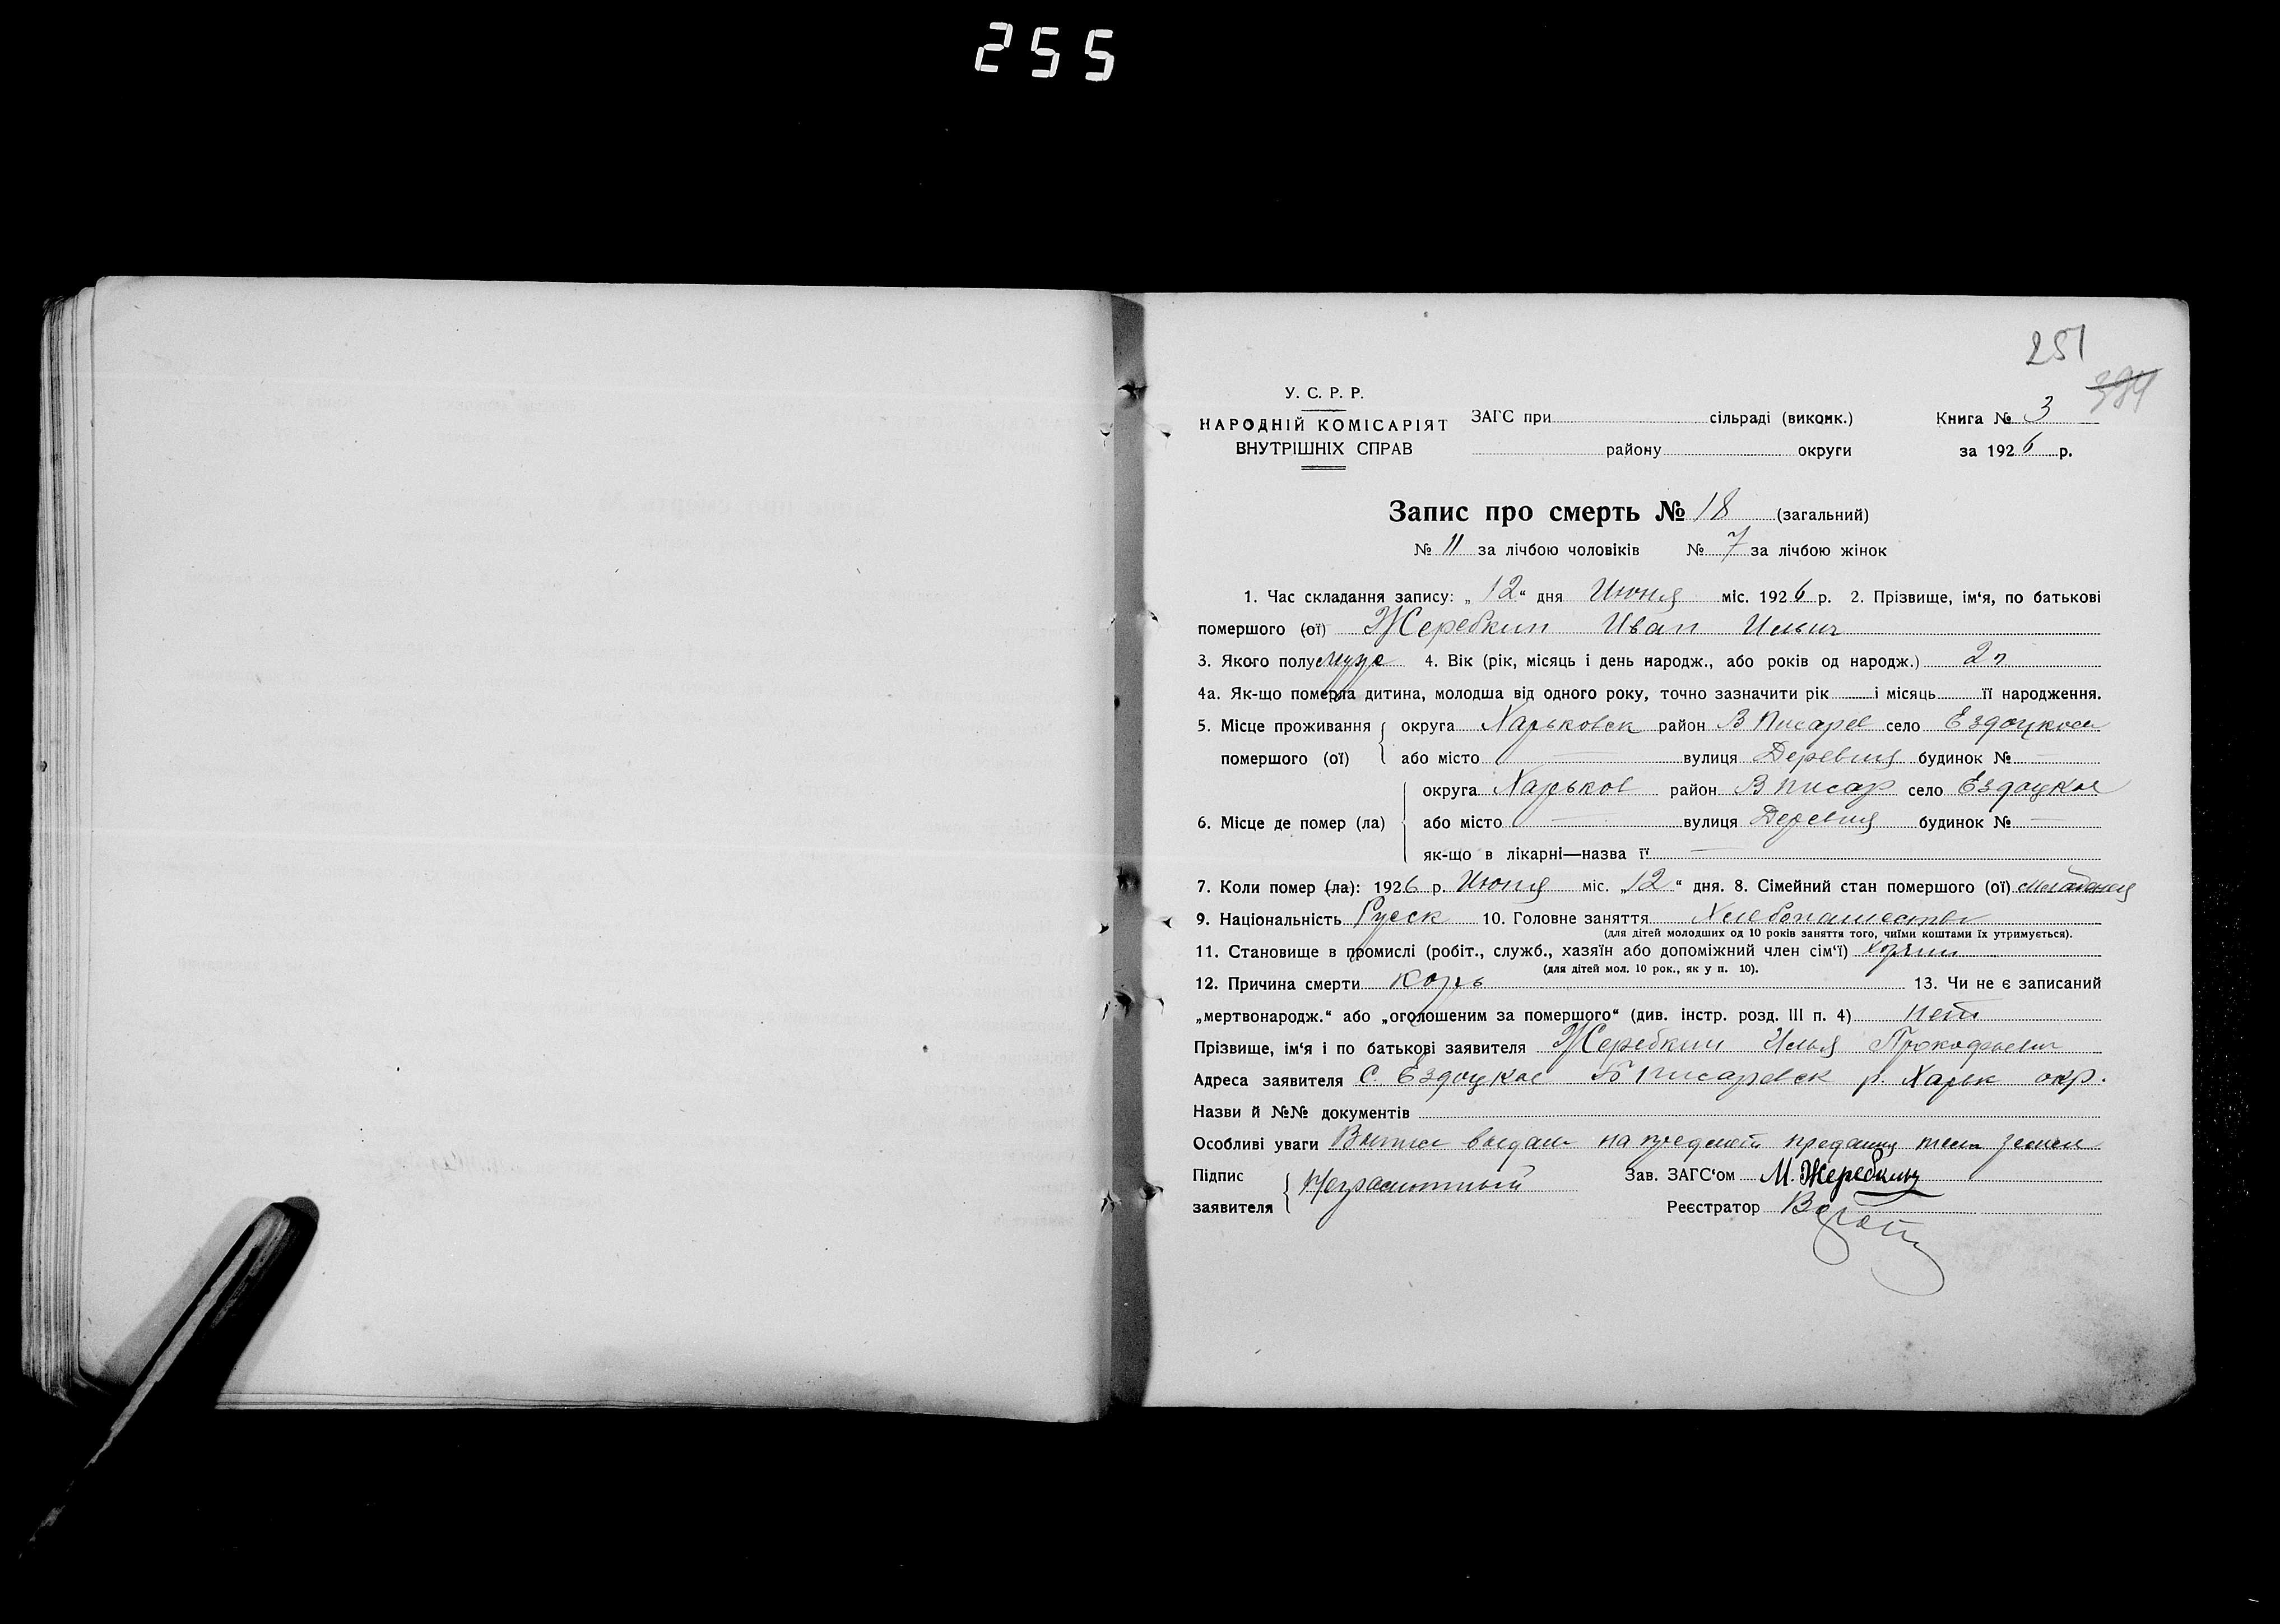 255
251
394
У. С. Р. Р.
НАРОДНІЙ КОМІСАРІЯТ
ВНУТРІШНІХ СПРАВ
ЗАГС при сільраді (виконк.)
району округи
Книга № 3
за 1926 р.
Запис про смерть № 18 (загальний)
№ 11 за лічбою чоловіків № 7 за лічбою жінок
1. Час складання запису: „12“ дня Июня міс. 1926 р. 2. Прізвище, ім‘я, по батькові
помершого (ої) Жеребкин Иван Ильич
3. Якого полу муже 4. Вік (рік, місяць і день народж., або років од народж.) 2 г
4а. Як-що померла дитина, молодша від одного року, точно зазначити рік і місяць її народження.
5. Місце проживання помершого (ої) округа Харьковск район В Писарев село Ездоцкое
або місто — вулиця Деревня будинок № —
6. Місце де помер (ла) округа Харьков район В писар село Ездоцкое
або місто — вулиця Деревня будинок № —
як-що в лікарні—назва її —
7. Коли помер (ла): 1926 р. Июня міс. „12“ дня. 8. Сімейний стан помершого (ої)
9. Національність Русск 10. Головне заняття Хлебопашество
(для дітей молодших од 10 років заняття того, чиїми коштами їх утримується).
11. Становище в промислі (робіт., служб., хазяїн або допоміжний член сім‘ї)
(для дітей мол. 10 рок., як у п. 10).
12. Причина смерти Корь 13. Чи не є записаний
„мертвонародж.“ або „оголошеним за помершого“ (див. інстр. розд. III п. 4) нет
Прізвище, ім‘я і по батькові заявителя Жеребкин Илья Прокофьевич
Адреса заявителя С. Ездоцкое В писаревск р. Харьк окр.
Назви й №№ документів
Особливі уваги выдан на предмет предания тела земле
Підпис заявителя Неграмотный
Зав. ЗАГС‘ом М. Жеребкин
Реєстратор